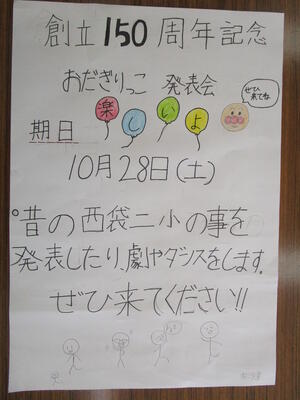 創立150周年記念
おだぎりっこ 発表会
楽しいよ
ぜひ
来てね
期日
10月28日(土)
°昔の西袋二小の事を
発表したり、劇やダンスをします。
ぜひ来てください!!